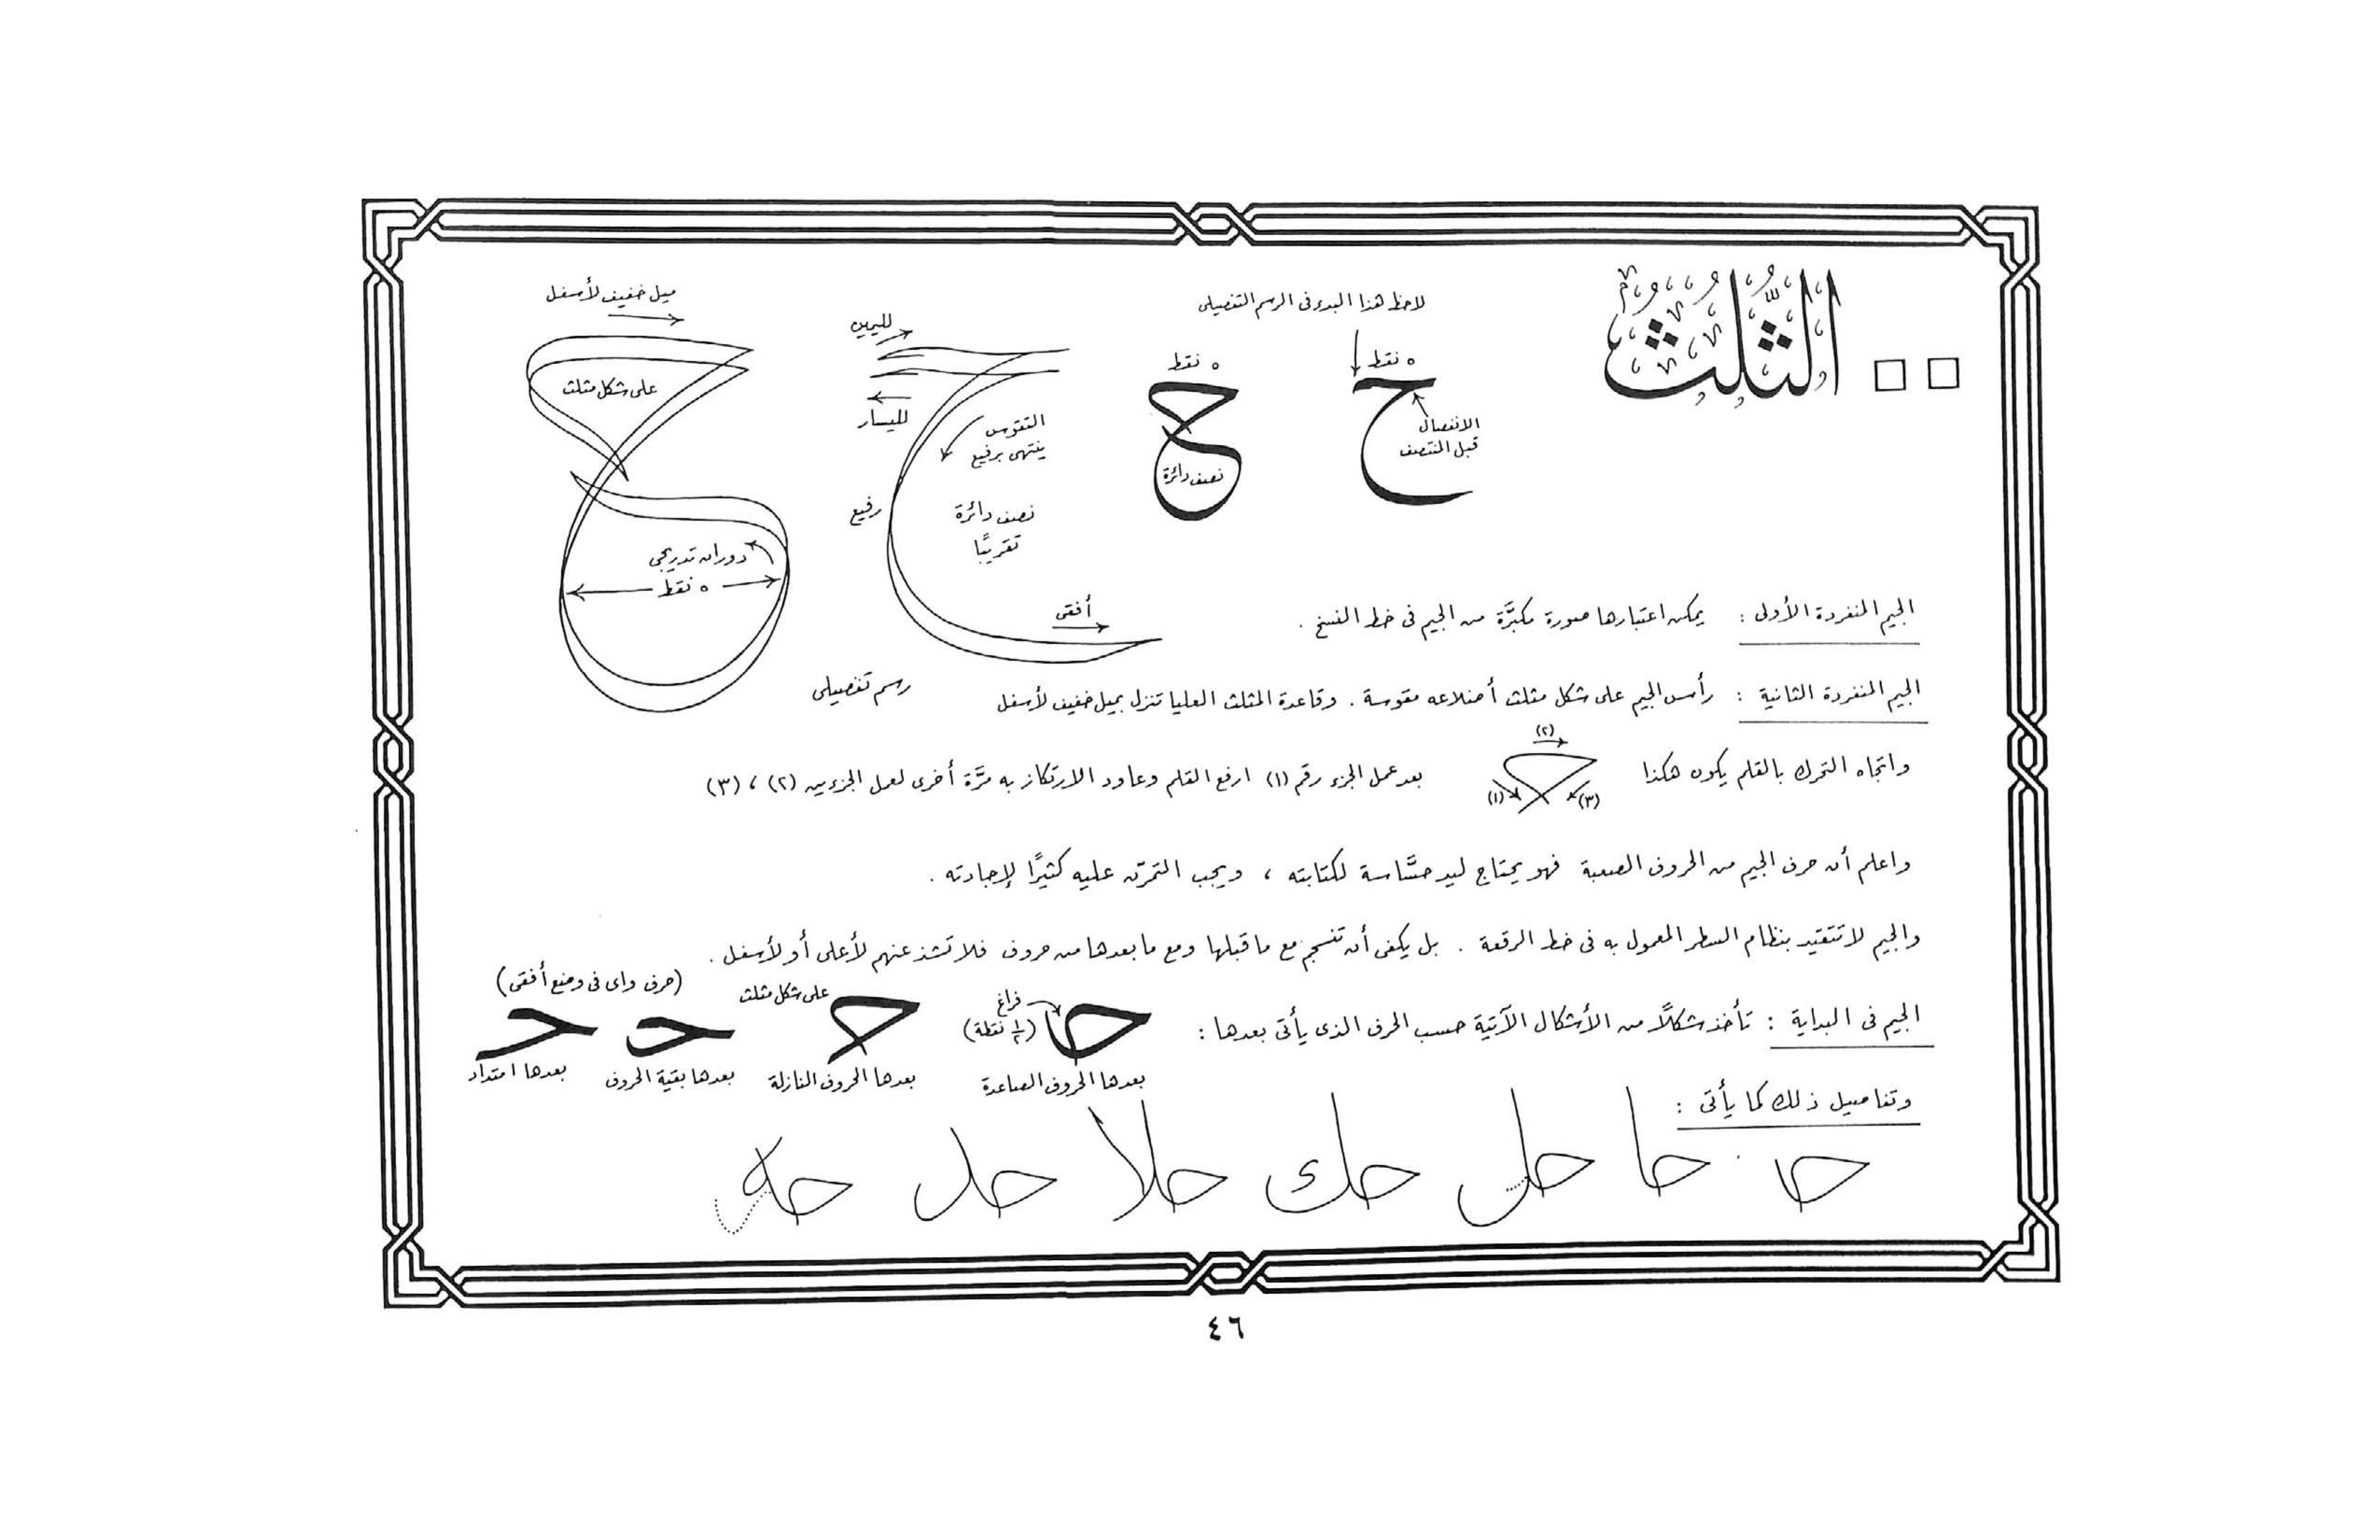 الثُّلُث
لاحظ هذا البدء فى الرسم التفصيلى
٥ نقط
الانفصال
قبل المنتصف
٥ نقط
نصف دائرة
لليمين
لليسار
التقوس
ينتهى برفيع
رفيع
نصف دائرة
تقريبًا
أفقى
ميل خفيف لأسفل
على شكل مثلث
دوران تدريجى
٥ نقط
رسم تفصيلى
الجيم المنفردة الأولى : يمكن اعتبارها صورة مكبَّرة من الجيم فى خط النسخ .
الجيم المنفردة الثانية : رأس الجيم على شكل مثلث أضلاعه مقوسة . وقاعدة المثلث العليا تنزل بميل خفيف لأسفل
واتجاه التحرك بالقلم يكون هكذا (١) (٢) (٣) بعد عمل الجزء رقم (١) ارفع القلم وعاود الارتكاز به مرَّة أخرى لعمل الجزءين (٢) ، (٣)
واعلم أن حرف الجيم من الحروف الصعبة فهو يحتاج ليد حسَّاسة لكتابته ، ويجب التمرّن عليه كثيرًا لإجادته .
والجيم لا تتقيد بنظام السطر المعمول به فى خط الرقعة . بل يكفى أن تنسجم مع ما قبلها ومع ما بعدها من حروف فلا تشذ عنهم لأعلى أو لأسفل .
الجيم فى البداية : تأخذ شكلًا من الأشكال الآتية حسب الحرف الذى يأتى بعدها :
فراغ
(١/٢ نقطة)
بعدها الحروف الصاعدة
على شكل مثلث
بعدها الحروف النازلة
(حرف واى فى وضع أفقى)
بعدها بقية الحروف
بعدها امتداد
وتفاصيل ذلك كما يأتى :
حا حل حك حلا حد حه
٤٦